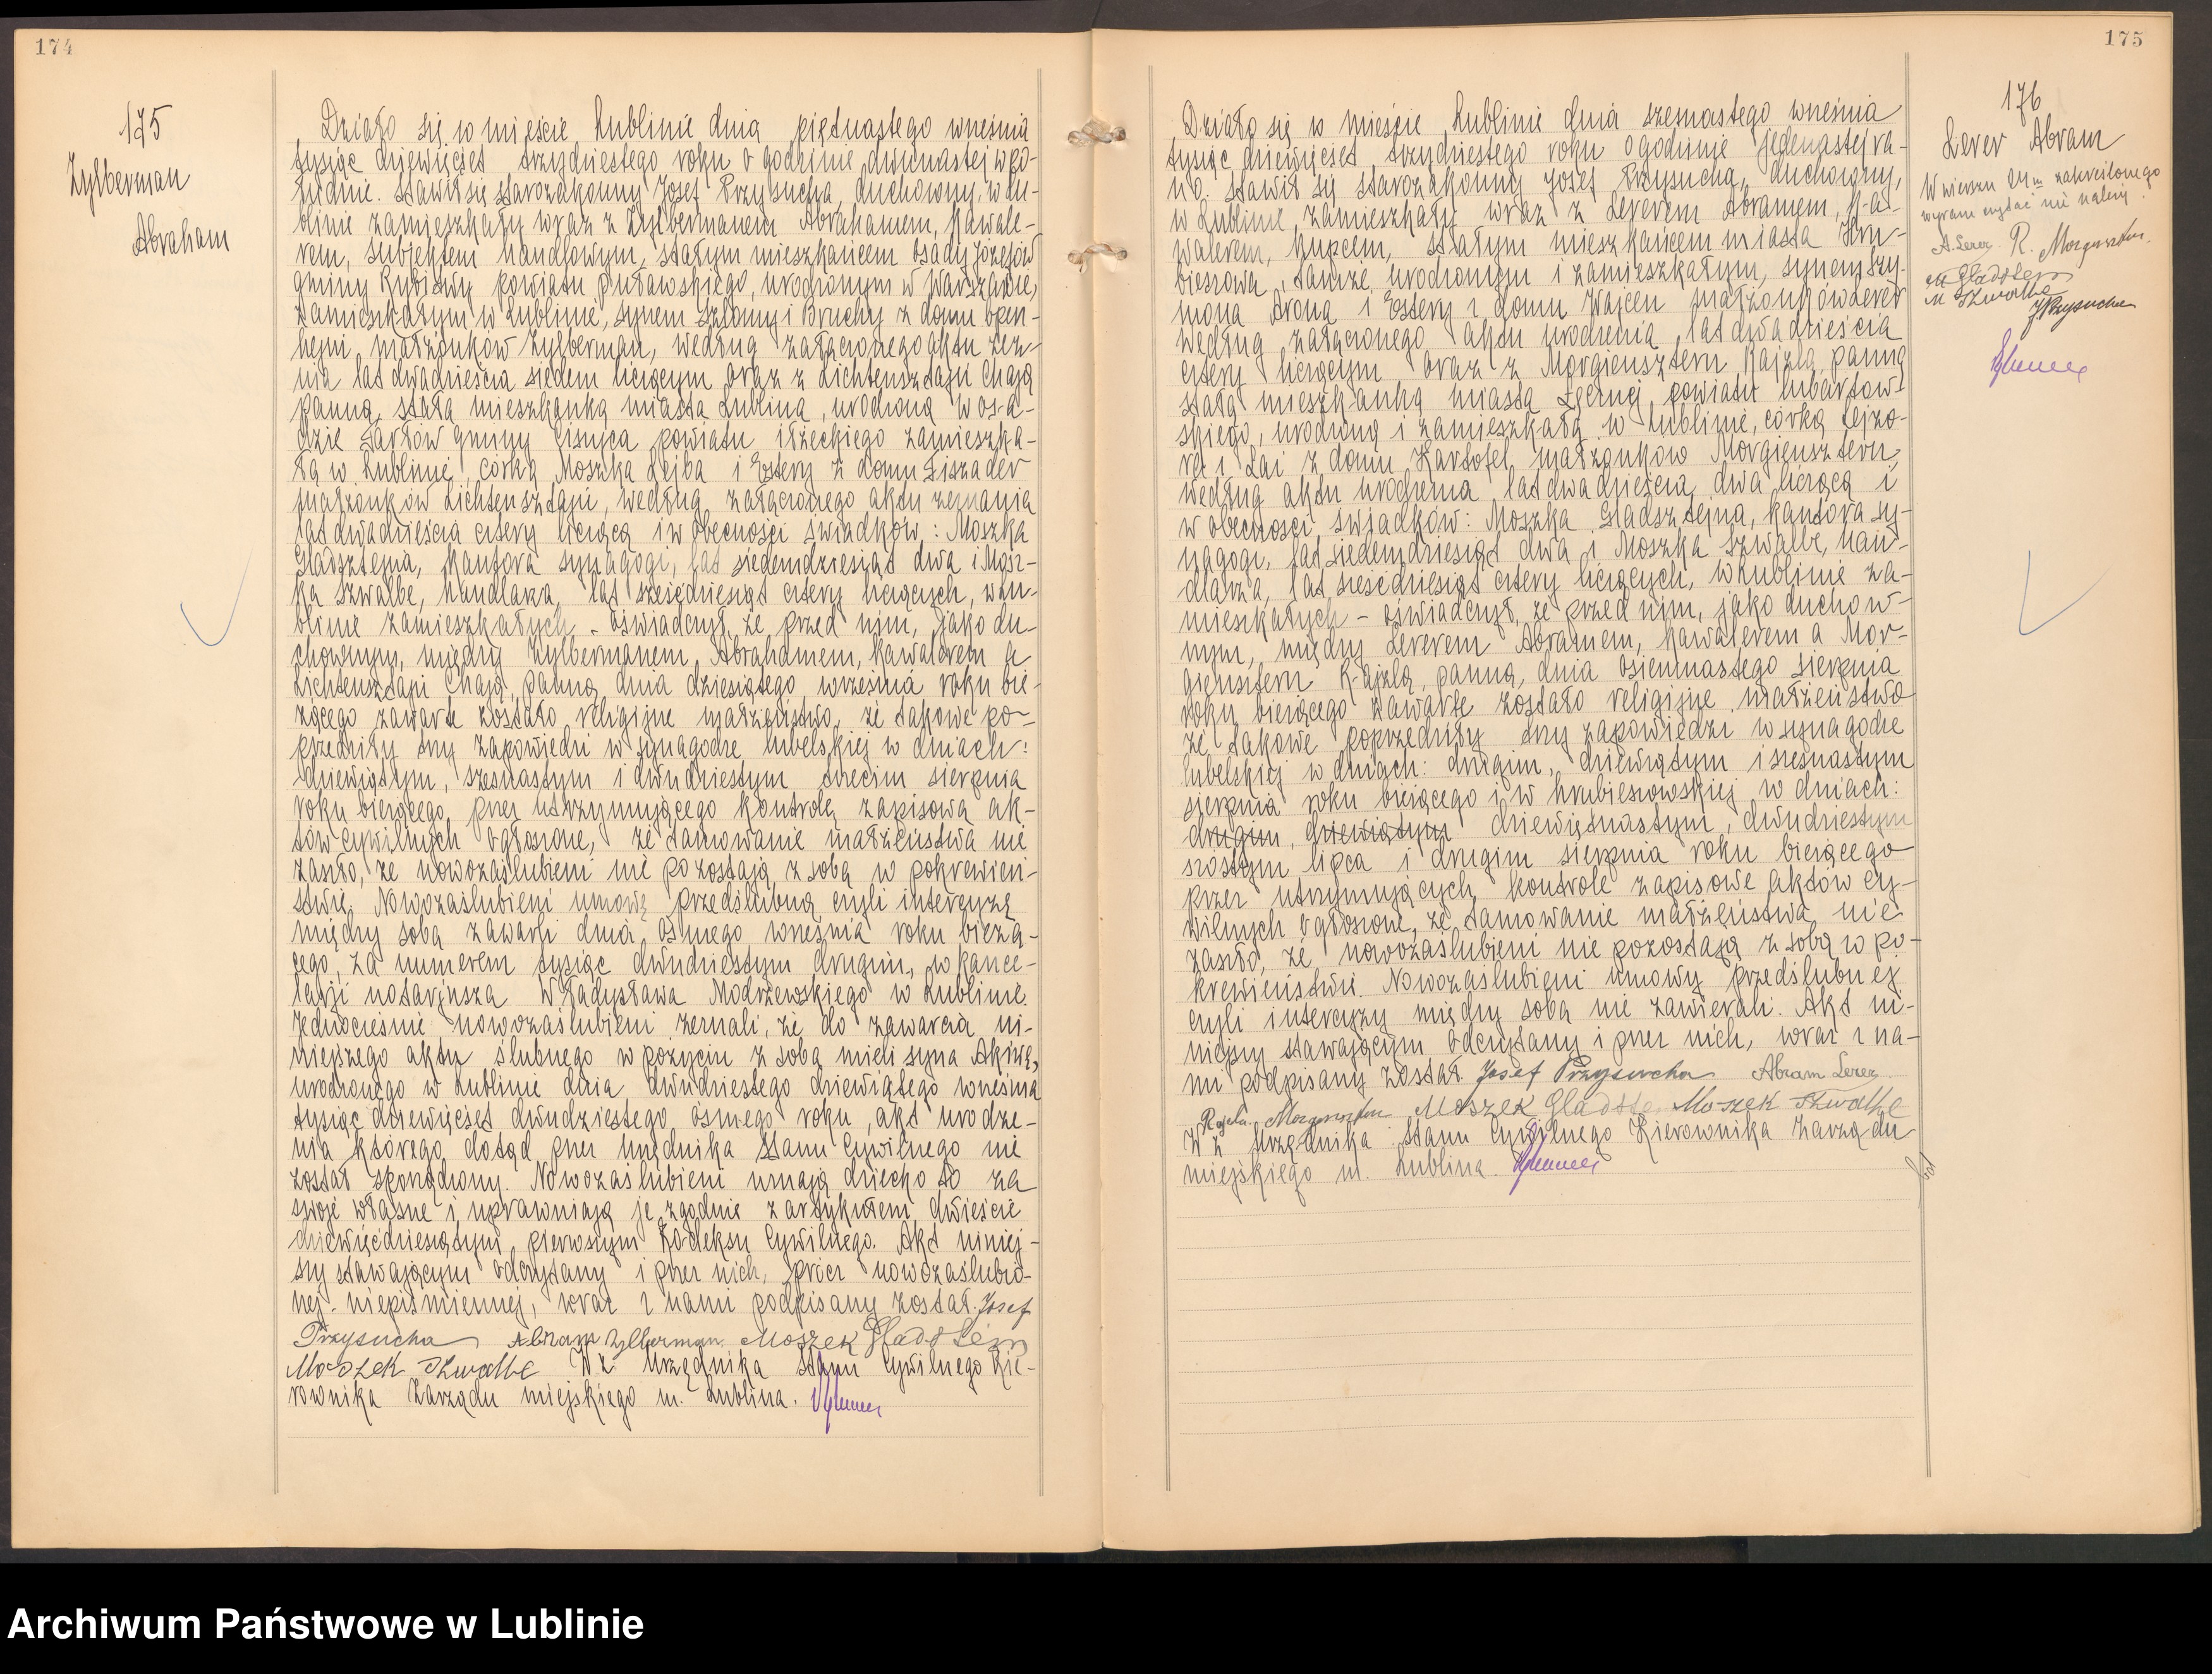 174
175
Zylberman
Abraham
Działo się w mieście Lublinie dnia piętnastego września
tysiąc dziewięćset trzydziestego roku o godzinie dwunastej w po-
łudnie. Stawił się starozakonny Josef Przysucha, duchowny, w Lu-
blinie zamieszkały wraz z Zylbermanem Abrahamem, kawale-
rem, subjektem handlowym, stałym mieszkańcem osady Józefów
gminy Rybitwy powiatu puławskiego, urodzonym w Warszawie,
zamieszkałym w Lublinie, synem Szlomy i Bruchy z domu Open-
hejm małżonków Zylberman, według załączonego aktu zez-
nia lat dwadzieścia siedem liczącym oraz z Lichtensztajn Chają
panną, stałą mieszkanką miasta Lublina, urodzoną w osa-
dzie Tarłów gminy Ciszyca powiatu iłżeckiego zamieszka-
łą w Lublinie, córką Moszka Lejba i Estery z domu Fiszader
małżonków Lichtensztajn, według załączonego aktu zeznania
lat dwadzieścia cztery liczącą i w obecności świadków: Moszka
Gladsztejna, kantora synagogi, lat siedemdziesiąt dwa i Mosz-
ka Szwalbe, handlarza, lat sześćdziesiąt cztery liczących, w Lu-
blinie zamieszkałych - oświadczył, że przed nim, jako du-
chownym, między Zylbermanem Abrahamem, kawalerem a
Lichtensztajn Chają, panną, dnia dziesiątego września roku bie-
żącego zawarte zostało religijne małżeństwo, że takowe po-
przedziły trzy zapowiedzi w synagodze lubelskiej w dniach:
dziewiątym, szesnastym i dwudziestym trzecim sierpnia
roku bieżącego, przez utrzymującego kontrolę zapisową ak-
tów cywilnych ogłoszone, że tamowanie małżeństwa nie
zaszło, że nowozaślubieni nie pozostają z sobą w pokrewień-
stwie. Nowozaślubieni umowę przedślubną czyli intercyzę
między sobą zawarli dnia ósmego września roku bieżą-
cego, za numerem tysiąc dwudziestym drugim, w kance-
larji notarjusza Władysława Modrzewskiego w Lublinie.
Jednocześnie nowozaślubieni zeznali, że do zawarcia ni-
niejszego aktu ślubnego w pożyciu z sobą mieli syna Akiwę,
urodzonego w Lublinie dnia dwudziestego dziewiątego września
tysiąc dziewięćset dwudziestego ósmego roku, akt urodze-
nia którego dotąd przez Urzędnika Stanu Cywilnego nie
został sporządzony. Nowozaślubieni uznają dziecko to za
swoje własne i uprawniają je zgodnie z artykułem dwieście
dziewięćdziesiątym pierwszym Kodeksu Cywilnego. Akt niniej-
szy stawającym odczytany i przez nich, prócz nowozaślubio-
nej - niepiśmiennej, wraz z nami podpisany został. Josef
Przysucha Abram Zylberman Moszek Gladstein
Moszek Szwalbe W z Urzędnika Stanu Cywilnego Kie-
rownika Zarządu miejskiego m. Lublina.
175
176
Lerer Abram
W wierszu 24m zakreślonego
wyrazu czytać nie należy.
A. Lerer R. Morgensztern
M Gladstein
M Szwalbe
J Przysucha
Działo się w mieście Lublinie dnia szesnastego września
tysiąc dziewięćset trzydziestego roku o godzinie jedenastej ra-
no. Stawił się starozakonny Josef Przysucha, duchowny,
w Lublinie zamieszkały wraz z Lererem Abramem, ka-
walerem, kupcem, stałym mieszkańcem miasta Hru-
bieszowa, tamże urodzonym i zamieszkałym, synem Szy-
mona Arona i Estery z domu Wajcen małżonków Lerer
według załączonego aktu urodzenia, lat dwadzieścia
cztery liczącym oraz z Morgiensztern Kajzlą, panną
stałą mieszkanką miasta Łęcznej powiatu lubartow-
skiego, urodzoną i zamieszkałą w Lublinie, córką Lejzo-
ra i Łai z domu Kartofel małżonków Morgiensztern,
według aktu urodzenia lat dwadzieścia dwa liczącą i
w obecności świadków: Moszka Gladsztejna, kantora sy-
nagogi, lat siedemdziesiąt dwa i Moszka Szwalbe, han-
dlarza, lat sześćdziesiąt cztery liczących, w Lublinie za-
mieszkałych - oświadczył, że przed nim, jako duchow-
nym, między Lererem Abramem, kawalerem a Mor-
giensztern Kajzlą, panną, dnia osiemnastego sierpnia
roku bieżącego zawarte zostało religijne małżeństwo
że takowe poprzedziły trzy zapowiedzi w synagodze
lubelskiej w dniach: drugim, dziewiątym i szesnastym
sierpnia roku bieżącego i w hrubieszowskiej w dniach:
drugim, dziewiątym dziewiętnastym, dwudziestym
szóstym lipca i drugim sierpnia roku bieżącego
przez utrzymujących kontrole zapisowe aktów cy-
wilnych ogłoszone, że tamowanie małżeństwa nie
zaszło, że nowozaślubieni nie pozostają z sobą w po-
krewieństwie. Nowozaślubieni umowy przedślubnej
czyli intercyzy między sobą nie zawierali. Akt ni-
niejszy stawającym odczytany i przez nich, wraz z na-
mi podpisany został. Josef Przysucha Abram Lerer
Morgensztern Moszek Gladste Moszek Szwalbe
W z Urzędnika Stanu Cywilnego Kierownika Zarządu
miejskiego m. Lublina.
Archiwum Państwowe w Lublinie